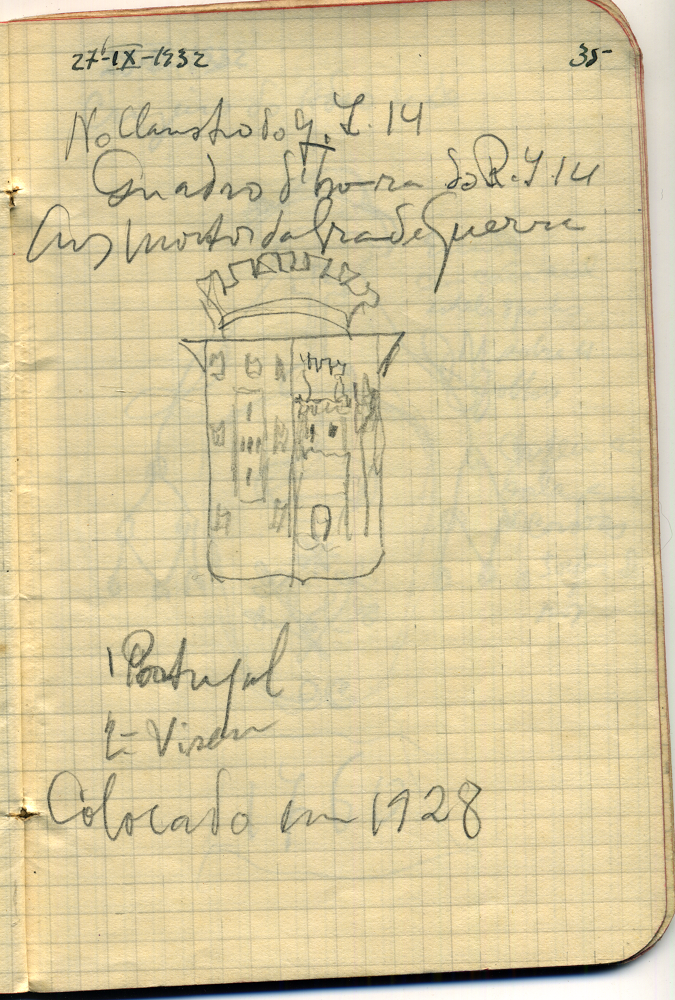 27-IX-1932 35
No Claustro do q. I. 14
Quadro d'honra do R. I. 14
Aos mortos da Grande Guerra
1 Portugal
2 - Viseu
Colocado em 1928